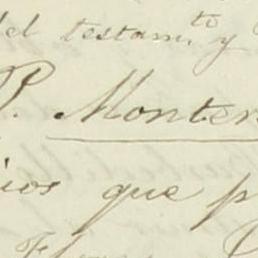 del testam.to y
P. Monter
ios que p